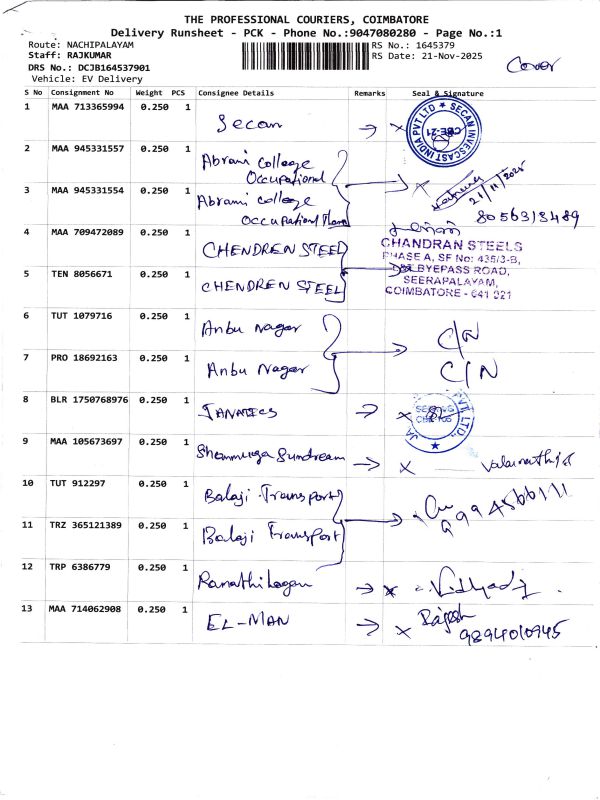 THE PROFESSIONAL COURIERS, COIMBATORE
Delivery Runsheet - PCK - Phone No.:9047080280 - Page No.:1
Route: NACHIPALAYAM
Staff: RAJKUMAR
DRS No.: DCJB164537901
Vehicle: EV Delivery
RS No.: 1645379
RS Date: 21-Nov-2025
Cover
S No Consignment No Weight PCS Consignee Details Remarks Seal & Signature
1 MAA 713365994 0.250 1 Secan
SECAN INVESCAST INDIA PVT LTD
CBE-21
2 MAA 945331557 0.250 1 Abrami College
Occupational
3 MAA 945331554 0.250 1 Abrami college
Occupational
21/11/2025
8056313489
4 MAA 709472089 0.250 1 CHENDREN STEEL
5 TEN 8056671 0.250 1 CHENDREN STEEL
CHANDRAN STEELS
PHASE A, SF No: 435/3-B,
BYEPASS ROAD,
SEERAPALAYAM,
COIMBATORE - 641 021
6 TUT 1079716 0.250 1 Anbu Nagar C/N
7 PRO 18692163 0.250 1 Anbu Nagar C/N
8 BLR 1750768976 0.250 1 JANATICS
PVT LTD.
9 MAA 105673697 0.250 1 Shanmuga Sundream
10 TUT 912297 0.250 1 Balaji Transport
11 TRZ 365121389 0.250 1 Balaji Transport
12 TRP 6386779 0.250 1
13 MAA 714062908 0.250 1 EL-MAN Rajesh
9894010945